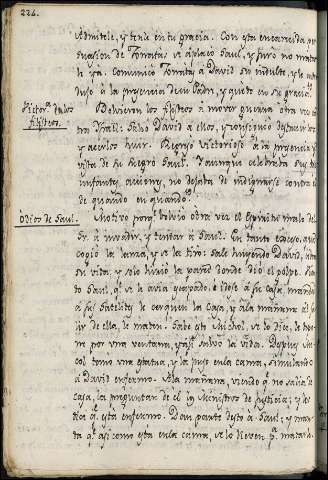 224.
Admitele, y tenle en tu gracia. Con esta encarecida per
suasion de Jonatás, se aplacó Saul, y juró no matar
le ya. Comunicó Jonatás a David su indulto, y lo
a la presencia de su Padre, y quedó en su gracia.
Victoria de los
filisteos.
Bolvieron los filisteos à mover guerra otra vez con
tra Israel: salió David a ellos, y consiguió destruirlos
y hacerlos huir. Regresó Victorioso à la presencia y
vista de su suegro Saul. Y aunque celebrada
acciones, no dejaba de indignarse contra el
de quando en quando.
Odios de Saul.
Motivo porque bolvió otra vez el Espiritu malo del
Sr. a invadir, y tentar à Saul. En tanto exceso, que
cogió la lanza, y se la tiró: Sale huyendo David, libra
su vida, y solo hirió la pared donde dió el golpe. No
tó Saul, q.e se le avia escapado, é idose à su casa, mandó
à sus Satelites le cerquen la Casa, y a la mañana al sa
lir de ella, le maten. Sabe esto Michol, se lo dice, le
por una ventana, y assi salvó la vida. Despues Mi
col tomó una estatua, y la puso en la cama, simulando
à David enfermo. A la mañana, viendo q. no salia de
Casa, la preguntan de el los Ministros de Justicia; y les
dice q.e está enfermo. Dan parte desto à Saul; y man
da q.e assi como está en la cama, se lo lleven p.a matarlo.